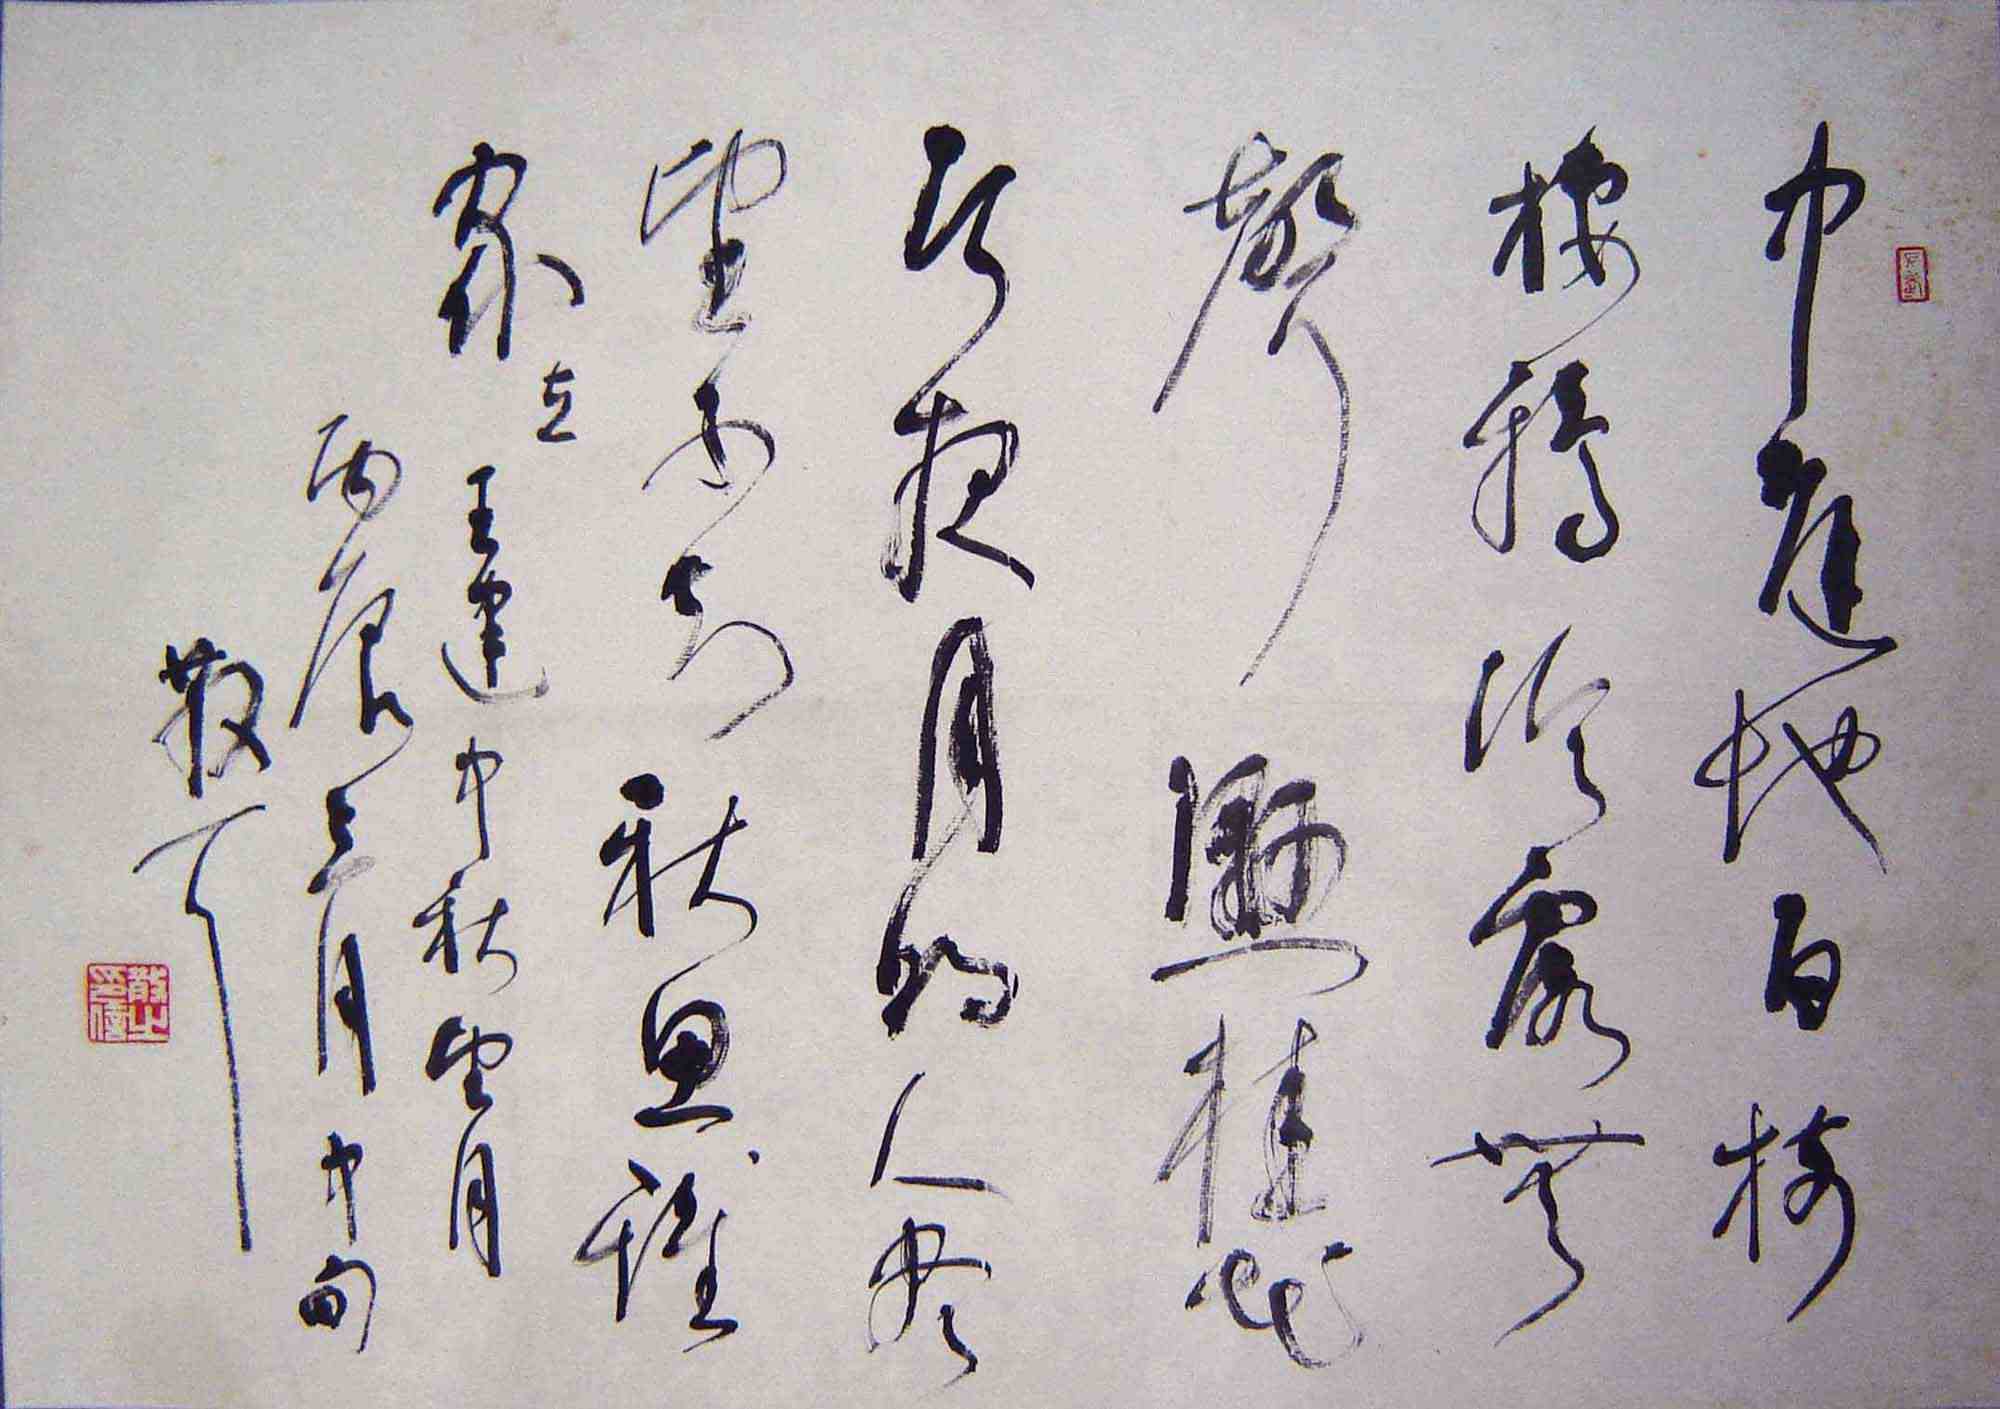 中庭地白樹
棲鴉冷露無
聲濕桂花
此夜月明人盡
望不知秋思誰
家 在 王建中秋望月
丙辰三月中旬
散耳
散之印信